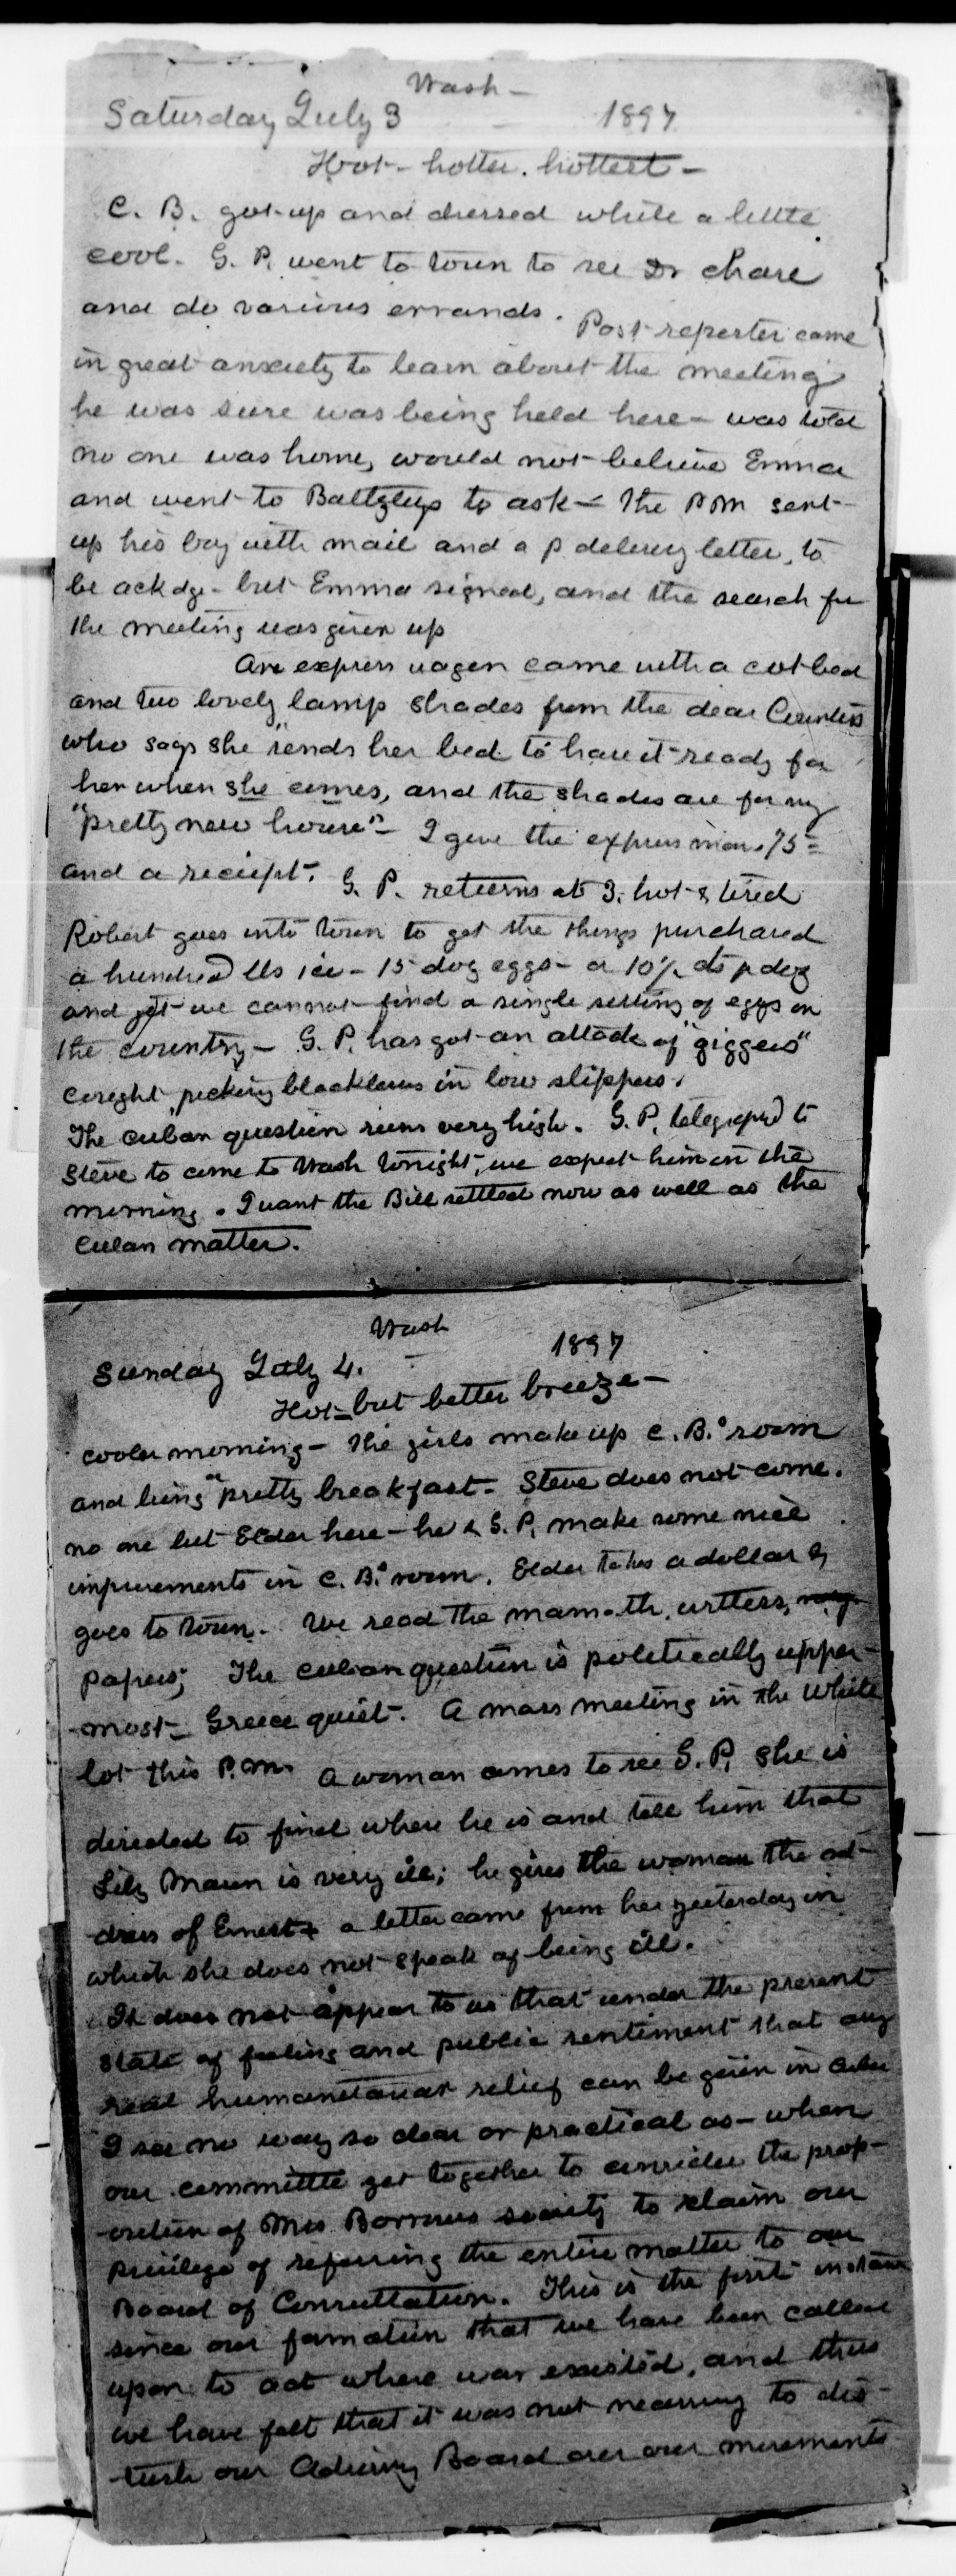 Wash -
Saturday July 3 - 1897
Hot - hotter. hottest -
C. B. got up and dressed while a little
cool. G. P. went to town to see Dr Chase
and do various errands. Post reporter came
in great anxiety to learn about the meeting
he was sure was being held here - was told
no one was home, would not believe Emma
and went to to ask - The P M sent
up his boy with mail and a p delivery letter, to
be ackdg - but Emma signed, and the search for
the meeting was given up
An express wagon came with a cot bed
and two lovely lamp shades from the dear Countess
who says she "sends her bed to have it ready for
her when she comes, and the shades are for my
"pretty new house" - I gave the express man .75 =
and a receipt. G. P. returns at 3. hot & tired
Robert goes into town to get the things purchased
a hundred lbs ice - 15 doz eggs - a 10 p doz
and yet we cannot find a single setting of eggs in
the country - G. P. has got an attack of "giggers"
caught picking blackberries in low slippers.
The Cuban question runs very high. G. P. telegraphd to
Steve to come to Wash tonight, we expect him in the
morning. I want the Bill settled now as well as the
Cuban matter.
Wash
Sunday July 4. - 1897
Hot - but better breeze -
cooler morning - The girls make up C. B.s room
and bring a pretty breakfast - Steve does not come.
no one but Elder here - he & G. P. make some nice
improvements in C. B.s room. Elder takes a dollar &
goes to town. We read the mamoth,
papers; The cuban question is politically upper-
-most - Greece quiet. A mass meeting in the White
lot this P.M. A woman comes to see G. P. she is
directed to find where he is and tell him that
is very ill; he gives the woman the ad-
-dress of Ernest & a letter came from her yesterday in
which she does not speak of being ill.
It does not appear to us that under the present
state of feeling and public sentiment that any
real humanitarian relief can be given in Cuba
I see no way so clear or practical as - when
our committee get together to consider the prop-
-osition of Mrs Borrows society to claim our
privilege of referring the entire matter to our
Board of Consultation. This is the first instance
since our formation that we have been called
upon to act where war existed, and thus
we have felt that it was not necessary to dis-
-turb our Advising Board over our movements